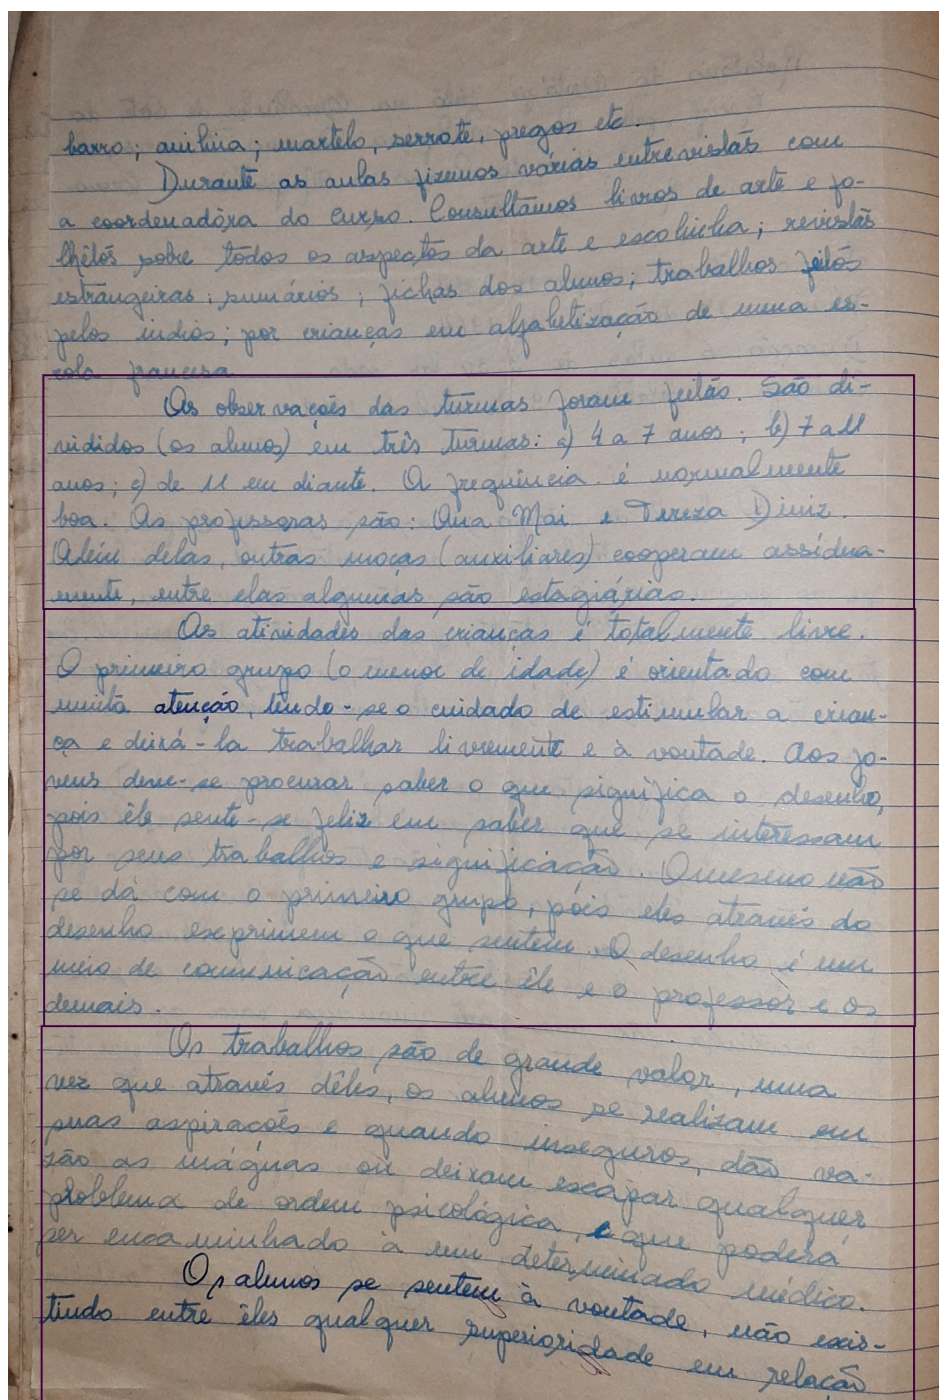 barro; anilina; martelo, serrote, pregos etc.
Durante as aulas fizemos várias entrevistas com
a coordenadôra do curso. Consultamos livros de arte e fo-
lhetos sobre todos os aspectos da arte e escolinha; revistas
estrangeiras; sumários; fichas dos alunos; trabalhos feitos
pelos índios; por crianças em alfabetização de uma es-
cola francesa
As observações das turmas foram feitas. São di-
vididos (os alunos) em três turmas: a) 4 a 7 anos; b) 7 a 11
anos; c) de 11 em diante. A frequência é normalmente
boa. As professoras são: Ana Mai e Tereza Diniz.
Além delas, outras moças (auxiliares) cooperam assídua-
mente, entre elas algumas são estagiárias.
As atividades das crianças é totalmente livre.
O primeiro grupo (o menor de idade) é orientado com
muita atenção, tendo-se o cuidado de estimular a crian-
ça e deixá-la trabalhar livremente e à vontade. Aos jo-
vens deve-se procurar saber o que significa o desenho,
pois êle sente-se feliz em saber que se interessam
por seus trabalhos e significação. O mesmo não
se dá com o primeiro grupo, pois eles através do
desenho exprimem o que sentem. O desenho é um
meio de comunicação entre êle e o professor e os
demais.
Os trabalhos são de grande valor, uma
vez que através dêles, os alunos se realizam em
suas aspirações e quando inseguros, dão va-
zão as mágoas ou deixam escapar qualquer
problema de ordem psicológica, e que poderá
ser encaminhado à um determinado médico.
Os alunos se sentem à vontade, não exis-
tindo entre êles qualquer superioridade em relação